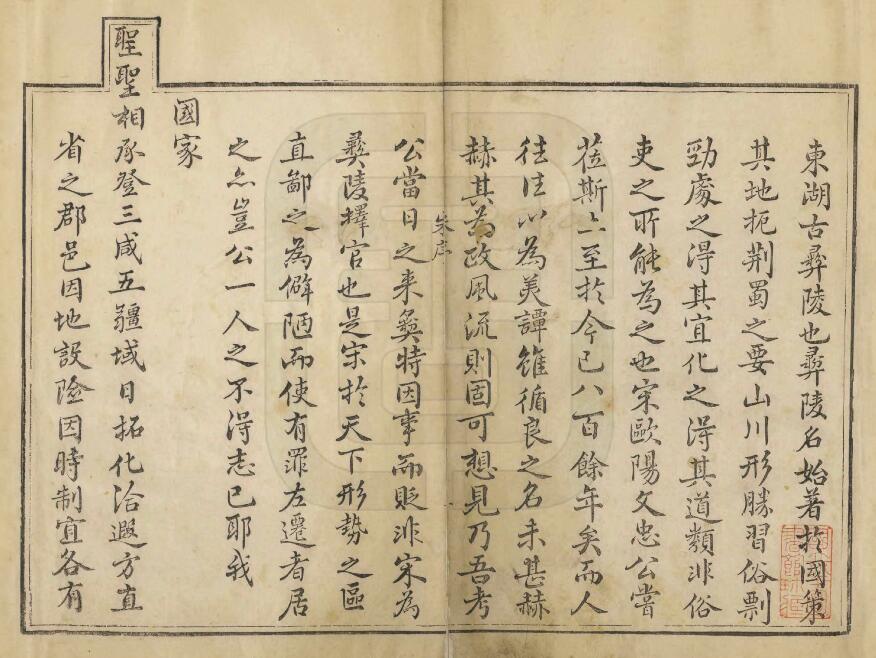 東湖古彝陵也彝陵名始著扵國策
其地扼荆蜀之要山川形勝習俗剽
勁處之淂其宜化之淂其道類非俗
吏之所能為之也宋歐陽文忠公嘗
莅斯土至扵今已八百餘年矣而人
徃徃以為美譚雖循良之名未甚赫
赫其為政風流則固可想見乃吾考
朱序
公當日之来彝特因事而貶非宋為
彝陵擇官也是宋扵天下形勢之區
直鄙之為僻陋而使有罪左遷者居
之亦豈公一人之不淂志已耶我
國家
聖聖相承登三咸五疆域日拓化洽遐方直
省之郡邑因地設險因時制宜各有